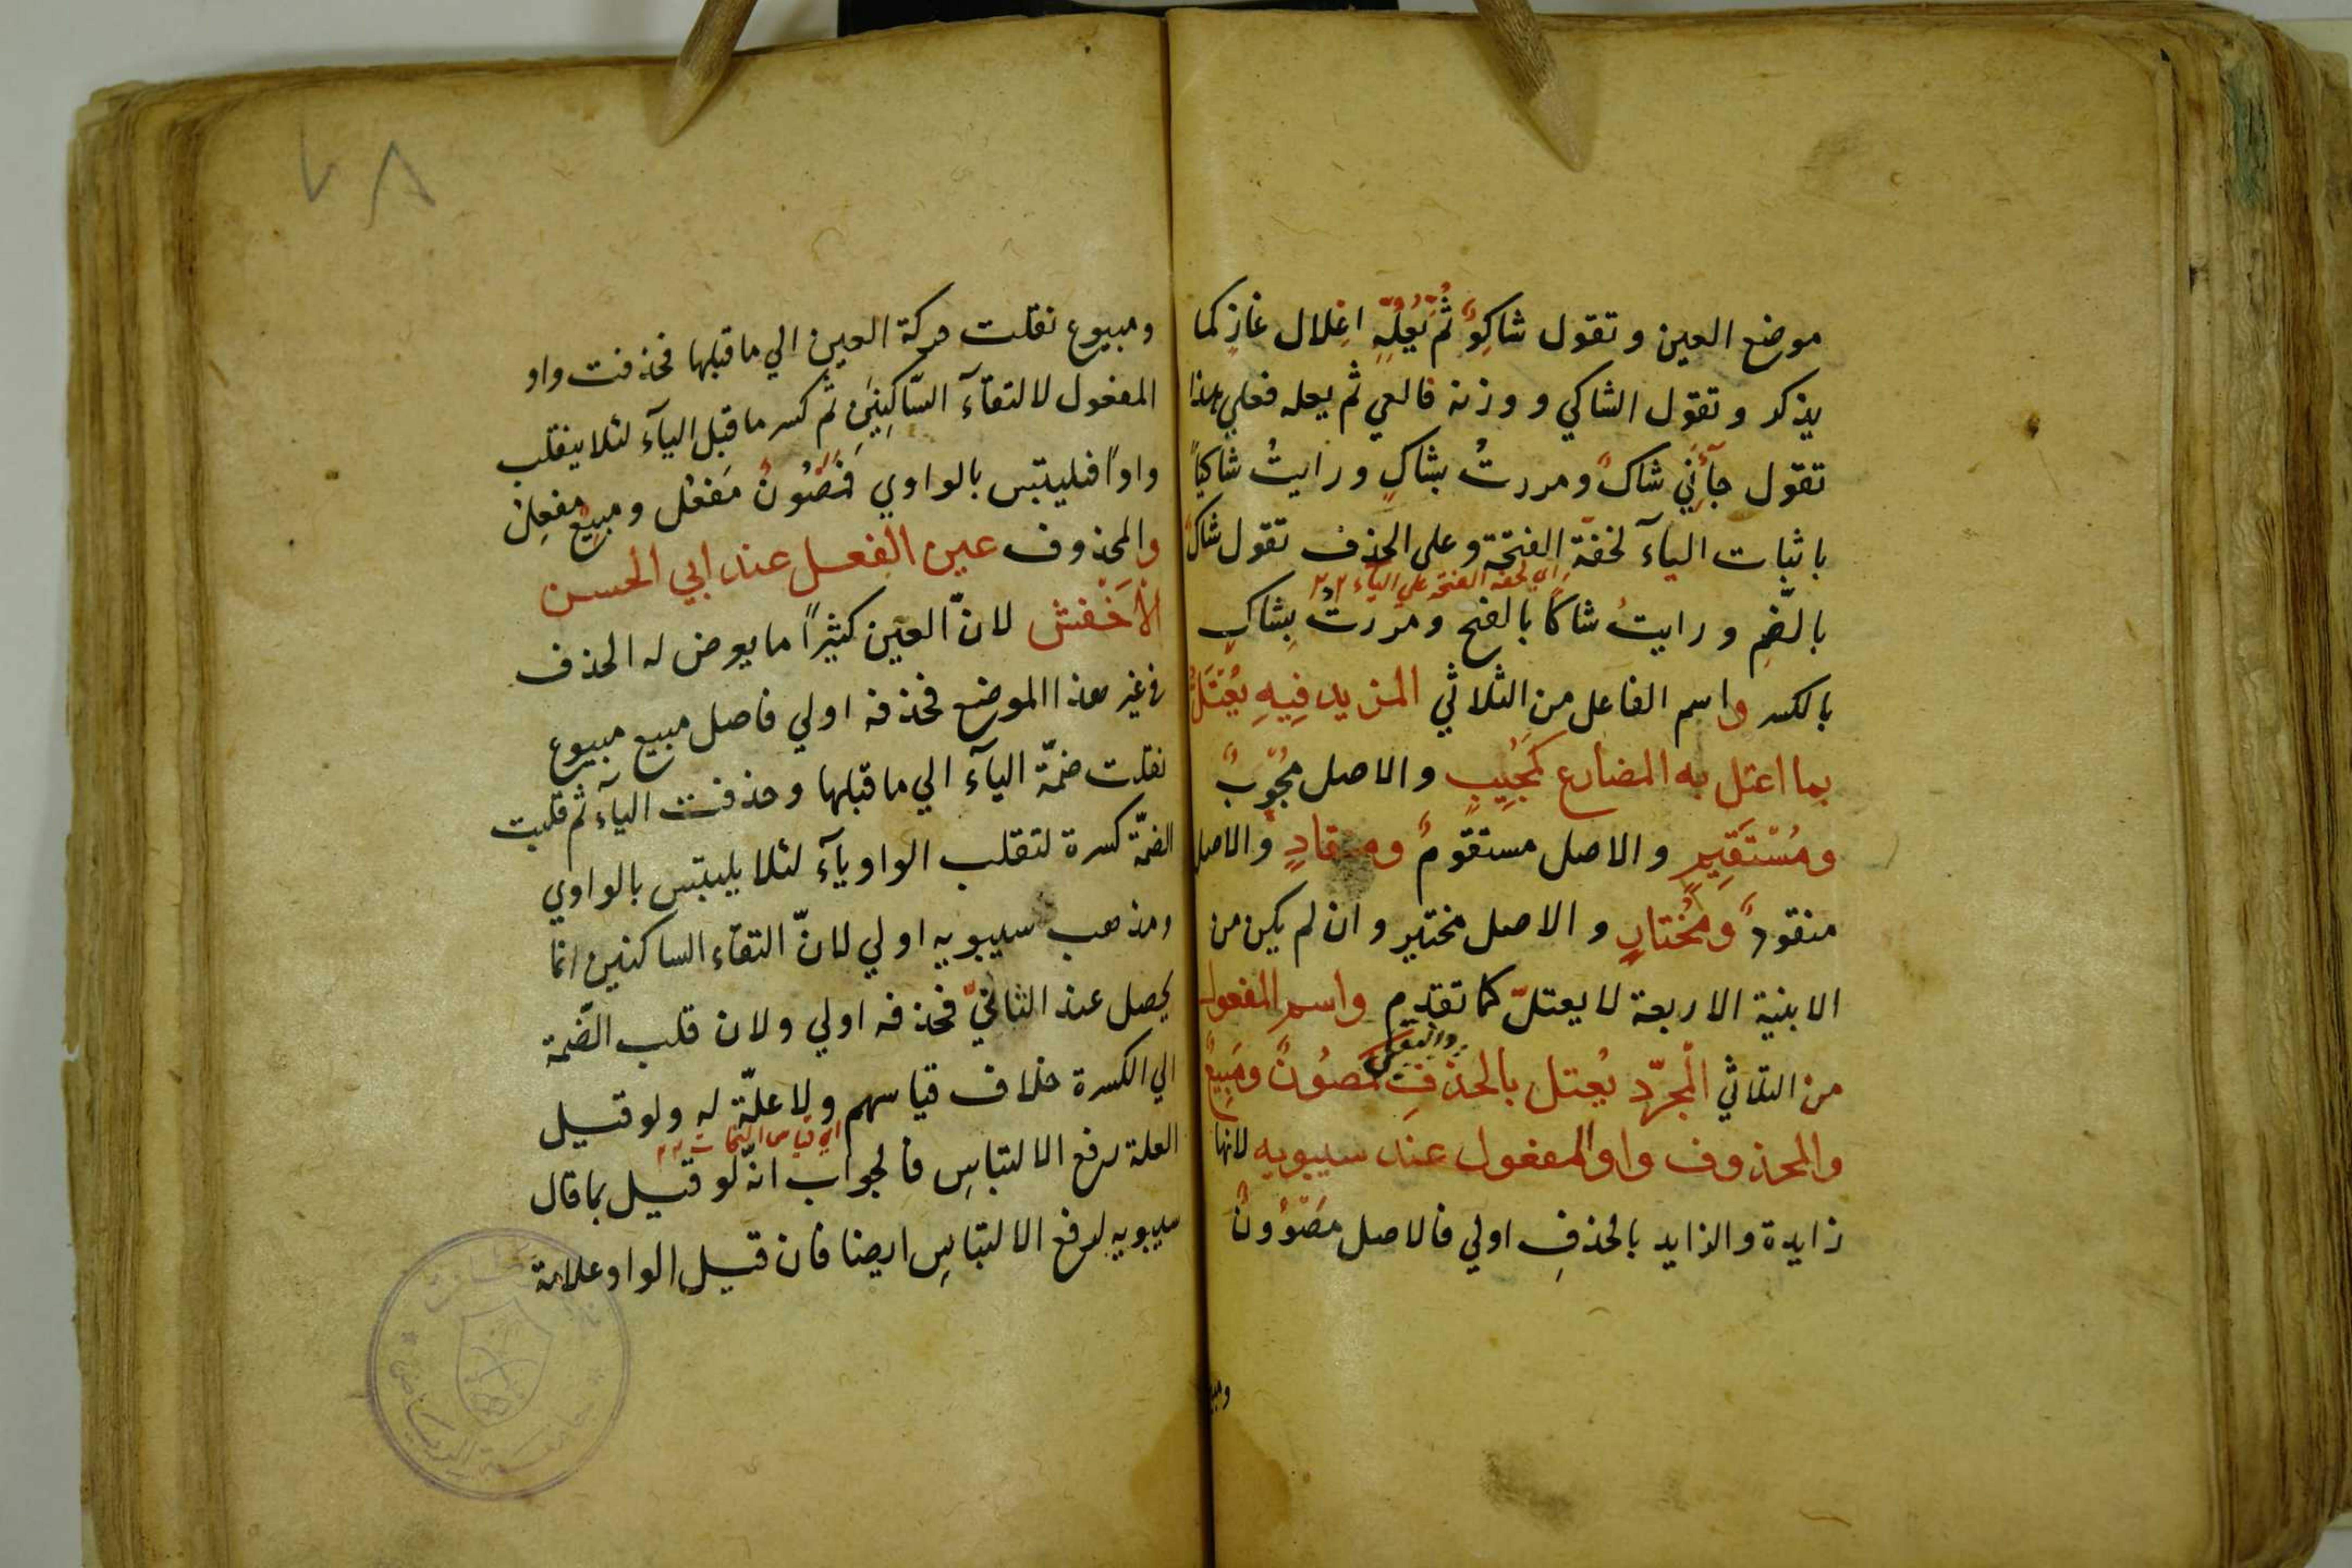 موضع العين وتقول شاكِوٌ ثُمَّ تُعِلُّه اعِلال غازٍ كما
يذكر وتقول الشاكي ووزنه فالعي ثم يعله فعلي هذا
تقول جآئَنِي شاكٌ ومررتُ بشاكٍ ورايتُ شاكياً
باثبات اليآء لخفّة الفتحة وعلى الحذف تقول شاكٌ
اي لخفة الفتحة علي الياء
بالضّمِ ورايتُ شاكا بالفتح ومررتُ بِشاكٍ
بالكسر واسم الفاعل من الثلاثي المزيد فِيهِ يُعْتَلُّ
بما اعتل به المضارع كَمُجِيبٍ والاصل مُجْوِبٌ
ومُسْتَقِيمٍ والاصل مستقوِمٌ ومنقادٍ والاصل
منقودٌ ومُختارٍ والاصل مختير وان لم يكن من
الابنية الاربعة لا يعتلّ كما تقدم واسم المفعول
من الثلاثي الُمجرّد يُعتل بالحذفِ كمَصُونٌ ومَبِيعٌ
والمحذوف واو المفعول عند سيبويه لانها
زايدة والزايد بالحذفِ اولي فالاصل مَصْوُونٌ
ومبيوع نقلت حركة العين الي ما قبلها فحذفت واو
المفعول لالتقآء السّاكِنِيَن ثُم كسر ما قبل اليآء لئلا ينقلب
واوًا فيلتبس بالواوي فمَصُونٌ مَفعُل ومبِيعٌ مفعِل
والمحذوف عين الفعل عند ابي الحسن
الأَخْفش لانّ العين كثيراً ما يعرض له الحذف
في غير هذا الموضع فحذفه اولي فاصل مبيع مبيوع
نقلت ضمّة اليآء الي ما قبلها وحذفت اليآء ثم قلبت
الضمّة كسرة لتقلب الواو يآء لئلا يلتبس بالواوي
ومذهب سيبويه اولي لانّ التقاء الساكنين انما
يحصل عند الثانيّ فحذفه اولي ولان قلب الضّمة
الي الكسرة خلاف قياسهم ولا علّة له ولو قيل
اي قياس النحات
العلة لرفع الالتباسِ فالجواب انّه لو قيل بما قال
سيبويه لرفع الالتباسِ ايضا فان قيل الواو علامة
جامعة الرياض